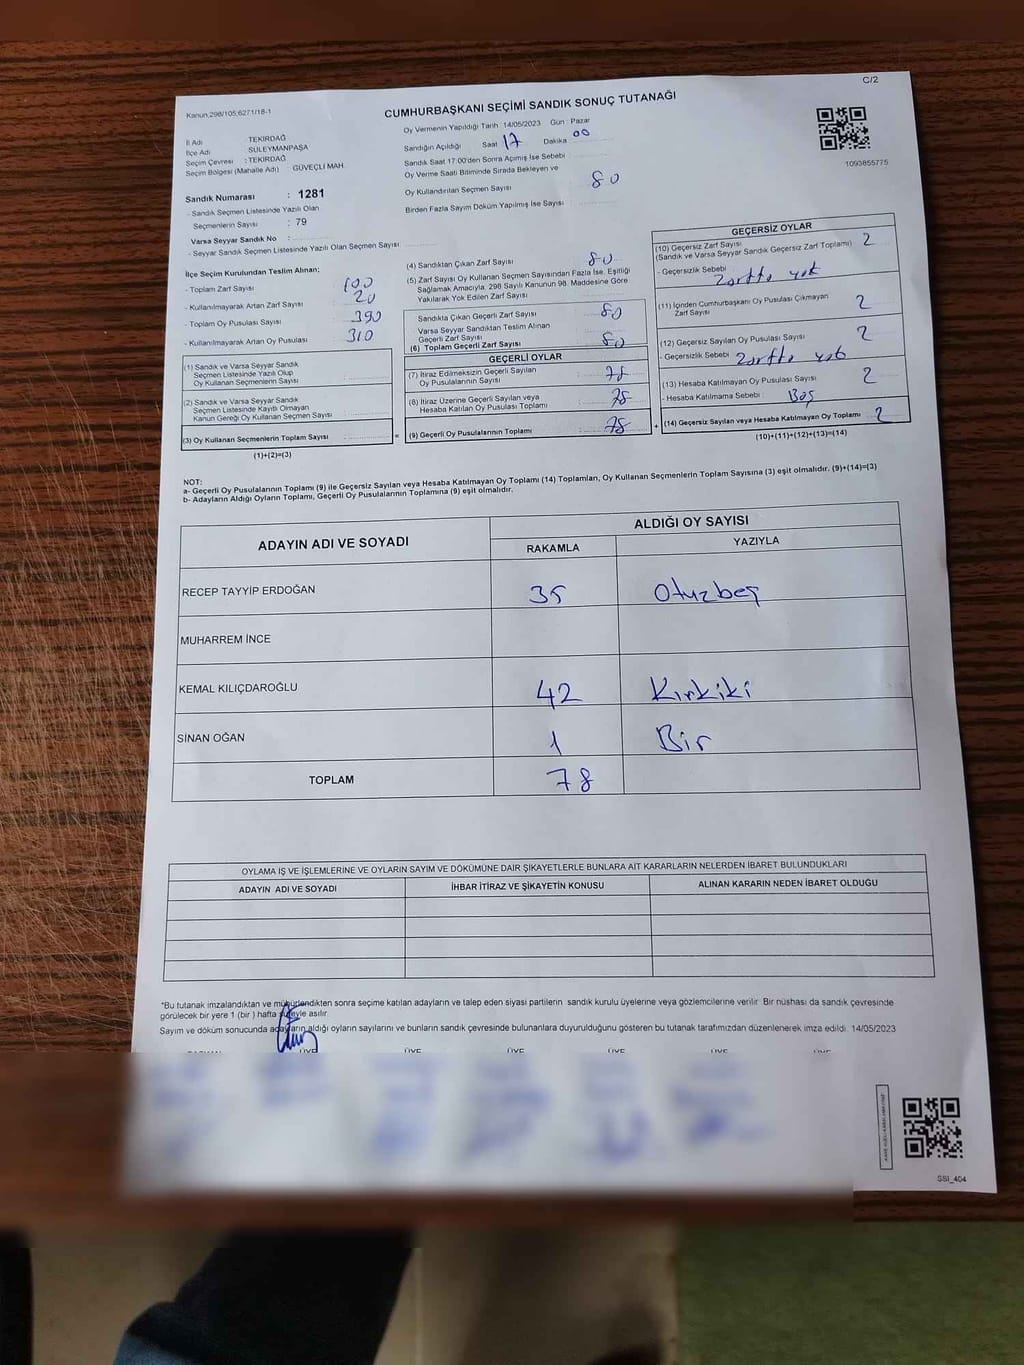 C/2
Kanun,298/105;6271/18-1
CUMHURBAŞKANI SEÇİMİ SANDIK SONUÇ TUTANAĞI
İl Adı : TEKİRDAĞ
İlçe Adı : SÜLEYMANPAŞA
Seçim Çevresi : TEKİRDAĞ
Seçim Bölgesi (Mahalle Adı) : GÜVEÇLİ MAH.
Sandık Numarası : 1281
- Sandık Seçmen Listesinde Yazılı Olan
Seçmenlerin Sayısı : 79
Varsa Seyyar Sandık No :
- Seyyar Sandık Seçmen Listesinde Yazılı Olan Seçmen Sayısı:
Oy Vermenin Yapıldığı Tarih :14/05/2023 Gün : Pazar
Sandığın Açıldığı Saat 17 Dakika 00
Sandık Saat 17:00'den Sonra Açılmış İse Sebebi :
Oy Verme Saati Bitiminde Sırada Bekleyen ve
Oy Kullandırılan Seçmen Sayısı : 80
Birden Fazla Sayım Döküm Yapılmış İse Sayısı :
1093855775
İlçe Seçim Kurulundan Teslim Alınan;
- Toplam Zarf Sayısı : 100
- Kullanılmayarak Artan Zarf Sayısı : 20
- Toplam Oy Pusulası Sayısı : 390
- Kullanılmayarak Artan Oy Pusulası : 310
(1) Sandık ve Varsa Seyyar Sandık
Seçmen Listesinde Yazılı Olup
Oy Kullanan Seçmenlerin Sayısı :
(2) Sandık ve Varsa Seyyar Sandık
Seçmen Listesinde Kayıtlı Olmayan
Kanun Gereği Oy Kullanan Seçmen Sayısı :
(3) Oy Kullanan Seçmenlerin Toplam Sayısı :
(1)+(2)=(3)
(4) Sandıktan Çıkan Zarf Sayısı : 80
(5) Zarf Sayısı Oy Kullanan Seçmen Sayısından Fazla İse, Eşitliği
Sağlamak Amacıyla, 298 Sayılı Kanunun 98. Maddesine Göre
Yakılarak Yok Edilen Zarf Sayısı :
Sandıkta Çıkan Geçerli Zarf Sayısı : 80
Varsa Seyyar Sandıktan Teslim Alınan
Geçerli Zarf Sayısı :
(6) Toplam Geçerli Zarf Sayısı : 80
GEÇERLİ OYLAR
(7) İtiraz Edilmeksizin Geçerli Sayılan
Oy Pusulalarının Sayısı : 78
(8) İtiraz Üzerine Geçerli Sayılan veya
Hesaba Katılan Oy Pusulası Toplamı : 78
(9) Geçerli Oy Pusulalarının Toplamı : 78
GEÇERSİZ OYLAR
(10) Geçersiz Zarf Sayısı
(Sandık ve Varsa Seyyar Sandık Geçersiz Zarf Toplamı) 2
- Geçersizlik Sebebi : zarfta yok
(11) İçinden Cumhurbaşkanı Oy Pusulası Çıkmayan
Zarf Sayısı : 2
(12) Geçersiz Sayılan Oy Pusulası Sayısı : 2
- Geçersizlik Sebebi zarfta yok
(13) Hesaba Katılmayan Oy Pusulası Sayısı : 2
- Hesaba Katılmama Sebebi : Boş
(14) Geçersiz Sayılan veya Hesaba Katılmayan Oy Toplamı : 2
(10)+(11)+(12)+(13)=(14)
NOT:
a- Geçerli Oy Pusulalarının Toplamı (9) ile Geçersiz Sayılan veya Hesaba Katılmayan Oy Toplamı (14) Toplamları, Oy Kullanan Seçmenlerin Toplam Sayısına (3) eşit olmalıdır. (9)+(14)=(3)
b- Adayların Aldığı Oyların Toplamı, Geçerli Oy Pusulalarının Toplamına (9) eşit olmalıdır.
ADAYIN ADI VE SOYADI ALDIĞI OY SAYISI
RAKAMLA YAZIYLA
RECEP TAYYİP ERDOĞAN 35 Otuzbeş
MUHARREM İNCE
KEMAL KILIÇDAROĞLU 42 Kırkiki
SİNAN OĞAN 1 Bir
TOPLAM 78
OYLAMA İŞ VE İŞLEMLERİNE VE OYLARIN SAYIM VE DÖKÜMÜNE DAİR ŞİKAYETLERLE BUNLARA AİT KARARLARIN NELERDEN İBARET BULUNDUKLARI
ADAYIN ADI VE SOYADI İHBAR İTİRAZ VE ŞİKAYETİN KONUSU ALINAN KARARIN NEDEN İBARET OLDUĞU
*Bu tutanak imzalandıktan ve mühürlendikten sonra seçime katılan adayların ve talep eden siyasi partilerin sandık kurulu üyelerine veya gözlemcilerine verilir. Bir nüshası da sandık çevresinde
görülecek bir yere 1 (bir) hafta süreyle asılır.
Sayım ve döküm sonucunda adayların aldığı oyların sayılarını ve bunların sandık çevresinde bulunanlara duyurulduğunu gösteren bu tutanak tarafımızdan düzenlenerek imza edildi. 14/05/2023
ÜYE ÜYE ÜYE ÜYE ÜYE ÜYE
SSI_404